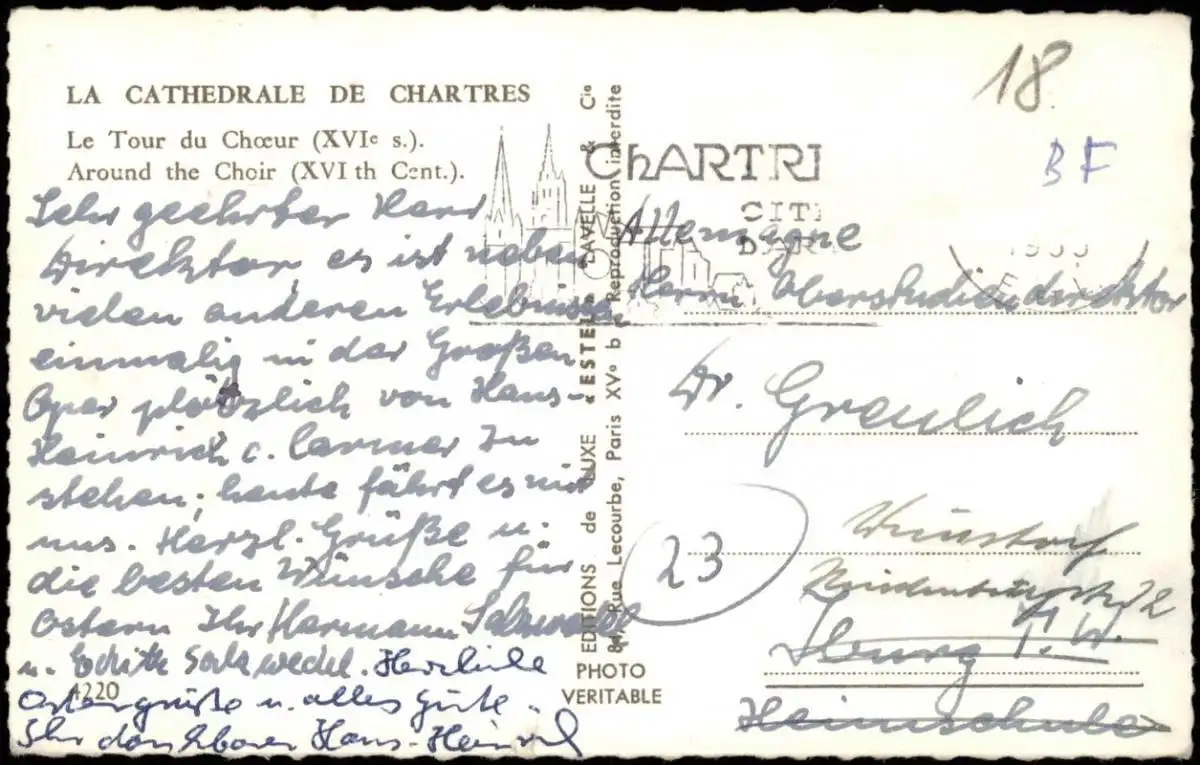 LA CATHEDRALE DE CHARTRES
Le Tour du Chœur (XVIe s.).
Around the Choir (XVI th Cent.).
Sehr geehrter Herr
Direktor, es ist neben
vielen anderen Erlebnissen
einmalig in der Großen
Oper plötzlich von Hans-
Heinrich c. Carmer zu
stehen; heute fährt es mit
uns. Herzl. Grüße u.
die besten Wünsche für
Ostern Ihr Hermann Salzwedel
u. Edith Salzwedel. Herzliche
Ostergrüße u. alles Gute.
Ihr dankbarer Hans-Heinrich
4220
EDITIONS de LUXE « ESTEL » LAVELLE & Cie
Rue Lecourbe, Paris XVe Reproduction interdite
PHOTO
VERITABLE
CHARTR
CIT
18
BF
Allemagne
Herrn Oberstudiendirektor
Dr. Greulich
23
Wunstorf
Iburg T. W.
Heimschule